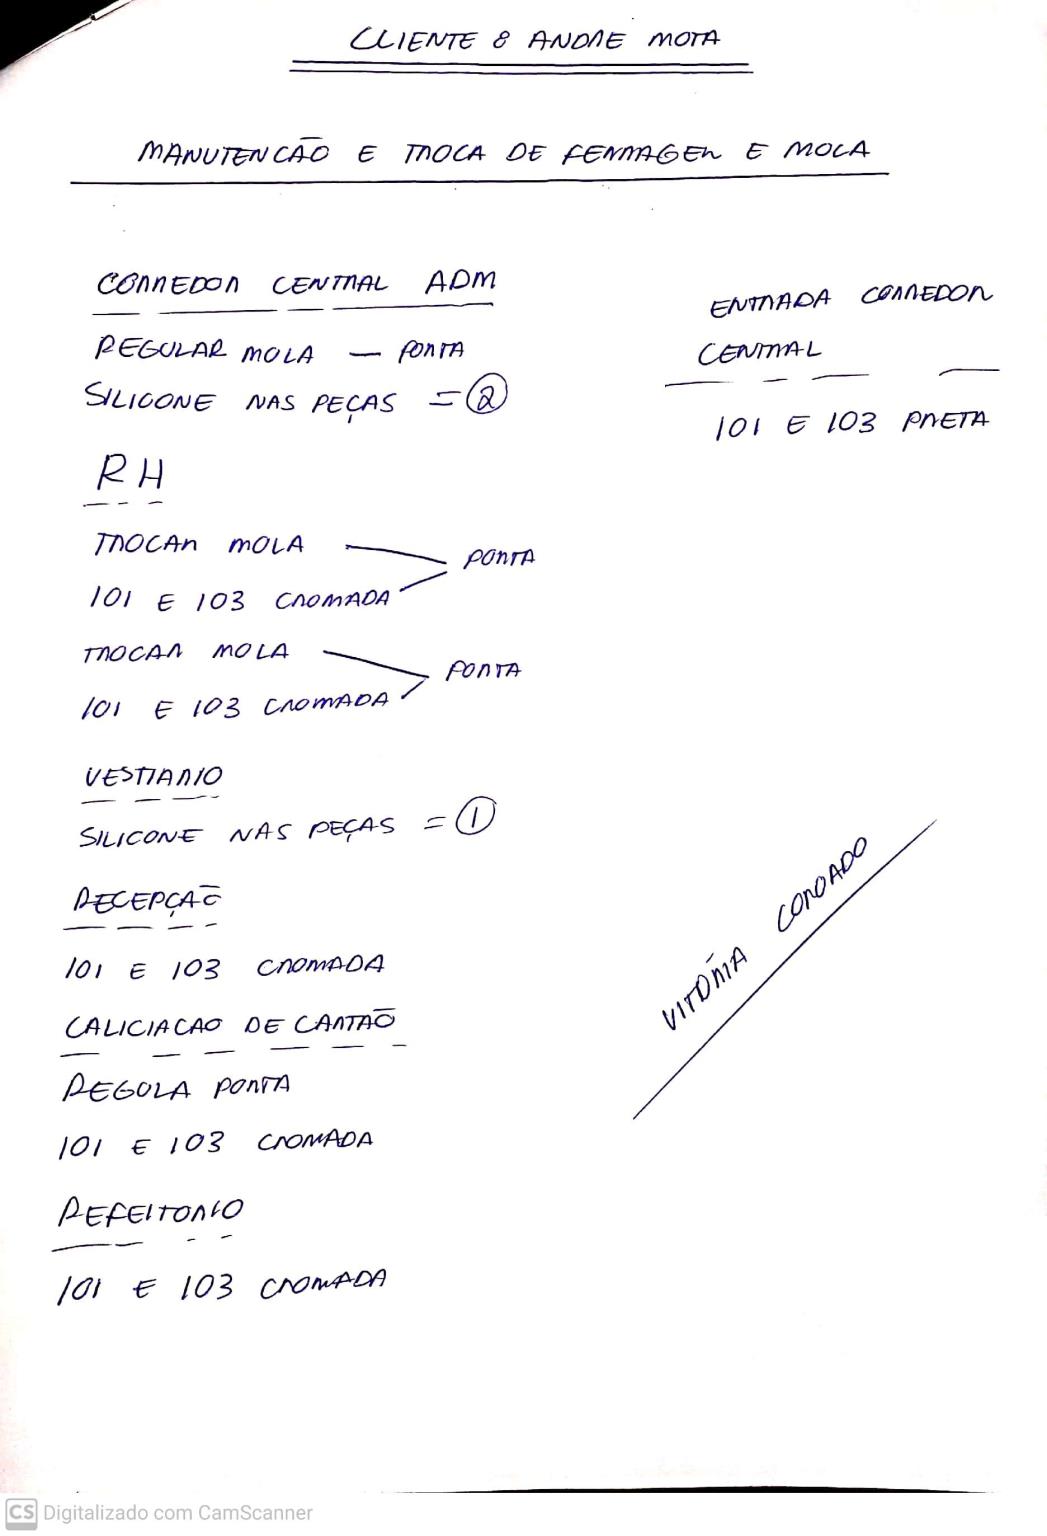 CLIENTE : ANDRE MOTA
MANUTENCÃO E TROCA DE FERRAGEM E MOLA
CORREDOR CENTRAL ADM
REGULAR MOLA — PORTA
SILICONE NAS PEÇAS = 2
ENTRADA CORREDOR
CENTRAL
101 E 103 PRETA
RH
TROCAR MOLA
101 E 103 CROMADA
PORTA
TROCAR MOLA
101 E 103 CROMADA
PORTA
VESTIARIO
SILICONE NAS PEÇAS = 1
RECEPÇAÕ
101 E 103 CROMADA
CALICIACAO DE CARTAÕ
REGOLA PORTA
101 E 103 CROMADA
REFEITORIO
101 E 103 CROMADA
VITÓRIA COROADO
CS Digitalizado com CamScanner